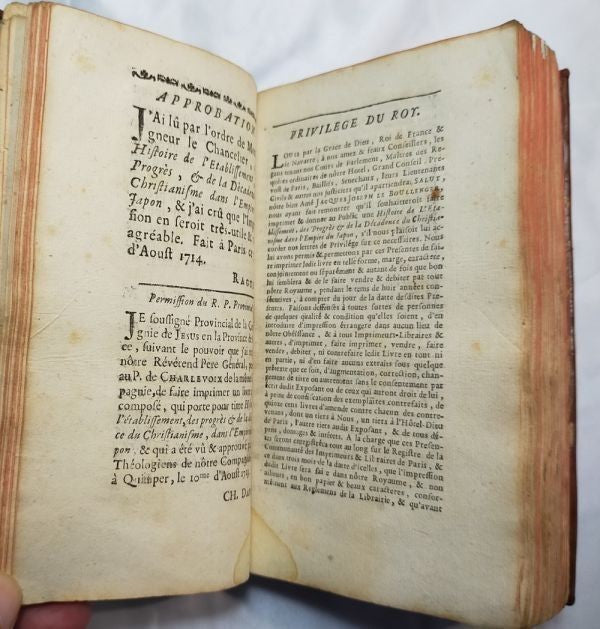 APPROBATION
J'Ai lû par l'ordre de Mon
gneur le Chancelier,
Histoire de l'Etablissement
Progrès, & de la Décadence
Christianisme dans l'Empi
Japon, & j'ai crû que l'Im
sion en seroit très-utile &
agréable. Fait à Paris ce
d'Aoust 1714.
RAGU
Permission du R. P. Provincial
JE soussigné Provincial de la Co
gnie de JESUS en la Province de
ce, suivant le pouvoir que j'ai r
nôtre Révérend Pere Général, pe
au P. de CHARLEVOIX de la même
pagnie, de faire imprimer un livre
composé, qui porte pour titre Hi
l'établissement, des progrès & de la d
ce du Christianisme, dans l'Empire
pon, & qui a été vû & approuvé p
Théologiens de nôtre Compagnie
à Quimper, le 10me d'Aoust 171
CH. DA
PRIVILEGE DU ROY.
LOUIS par la Grace de Dieu, Roi de France &
de Navarre; à nos amez & feaux Conseillers, les
gens tenans nos Cours de Parlement, Maîtres des Re-
quêtes ordinaires de nôtre Hôtel, Grand Conseil, Pre-
vost de Paris, Baillifs, Senechaux, leurs Lieutenans
Civils & autres nos justiciers qu'il appartiendra; SALUT,
nôtre bien Amé JACQUES JOSEPH LE BOULLENGER,
nous ayant fait remontrer qu'il souhaiteroit faire
imprimer & donner au Public une Histoire de l'Eta-
blissement, des Progrès & de la Décadence du Christia-
nisme dans l'Empire du Japon, s'il nous plaisoit lui
accorder nos lettres de Privilége sur ce necessaires. Nous
lui avons permis & permettons par ces Presentes de fai-
re imprimer ledit livre en telle forme, marge, caractere,
conjointement ou séparément & autant de fois que bon
lui semblera & de le faire vendre & debiter par tout
nôtre Royaume, pendant le tems de huit années con-
sécutives, à compter du jour de la datte desdites Pre-
sentes. Faisons défenses à toutes sortes de personnes
de quelques qualité & condition qu'elles soient, d'en
introduire d'impression étrangère dans aucun lieu de
nôtre Obéïssance, & à tous Imprimeurs-Libraires &
autres, d'imprimer, faire imprimer, vendre, faire
vendre, debiter, ni contrefaire ledit Livre en tout ni
en partie, ni d'en faire aucuns extraits sous quelque
pretexte que ce soit, d'augmentation, correction, chan-
gement de titre ou autrement sans le consentement par
écrit dudit Exposant ou de ceux qui auront droit de lui,
à peine de confiscation des exemplaires contrefaits, de
quinze cens livres d'amende contre chacun des contre-
venans, dont un tiers à Nous, un tiers à l'Hôtel-Dieu
de Paris, l'autre tiers audit Exposant, & de tous dé-
pens, dommages & intérêts. A la charge que ces Presen-
tes seront enregistrées tout au long sur le Registre de la
Communauté des Imprimeurs & Libraires de Paris, &
ce dans trois mois de la datte d'icelles, que l'impression
dudit Livre sera faite dans nôtre Royaume, & non
ailleurs, en bon papier & beaux caracteres, confor-
mément aux Reglemens de la Librairie, & qu'avant